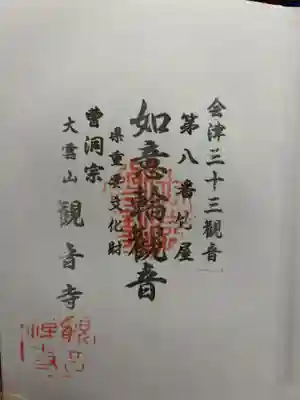 会津三十三観音
第八番札所
如意輪観音
県重要文化財
曹洞宗
大雲山 観音寺